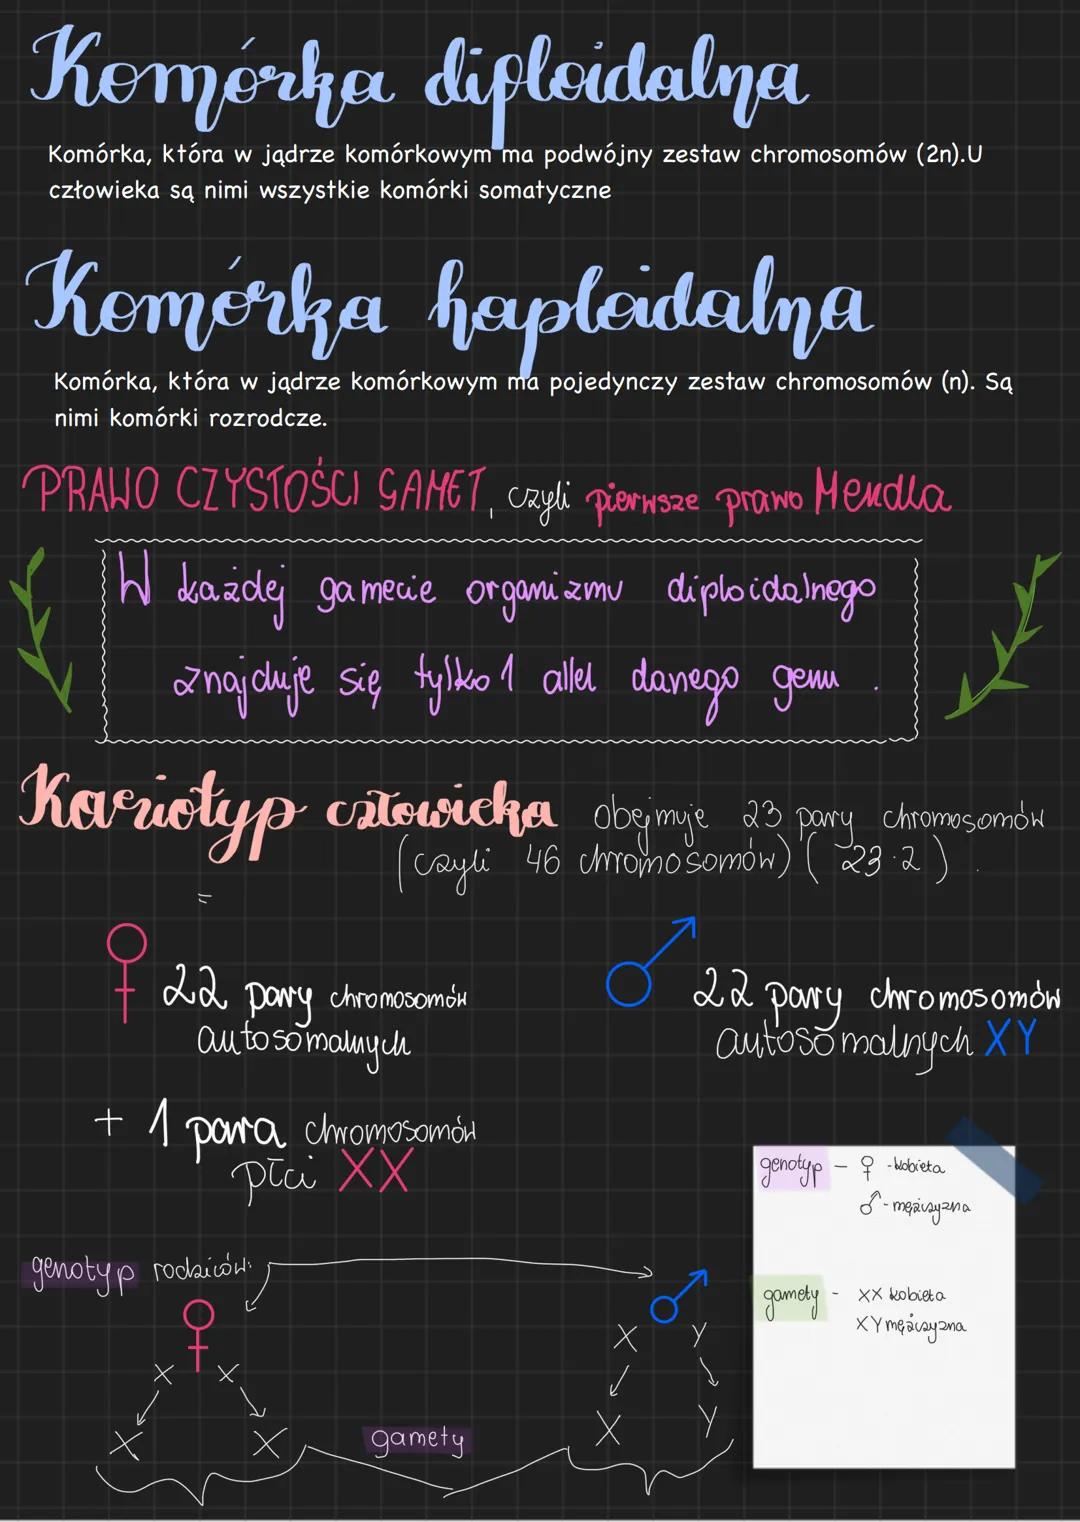 Komórka diploidalna
Komórka, która w jądrze komórkowym ma podwójny zestaw chromosomów (2n).U
człowieka są nimi wszystkie komórki somatyczne
Komórka haploidalna
Komórka, która w jądrze komórkowym ma pojedynczy zestaw chromosomów (n). Są
nimi komórki rozrodcze.
PRAWO CZYSTOŚCI GAMET, czyli pierwsze prawo Mendla
W każdej gamecie organizmu diploidalnego
znajduje się tylko 1 allel danego genu.
Kariotyp człowieka obejmuje 23 pary chromosomów
(czyli 46 chromosomów) (23·2).
=
♀ 22 pary chromosomów
autosomalnych
+ 1 para chromosomów
płci XX
♂ 22 pary chromosomów
autosomalnych XY
genotyp - ♀ - kobieta
♂ - mężczyzna
gamety - XX kobieta
XY mężczyzna
genotyp rodziców:
♀ ♂
X X X Y
X X X Y
gamety